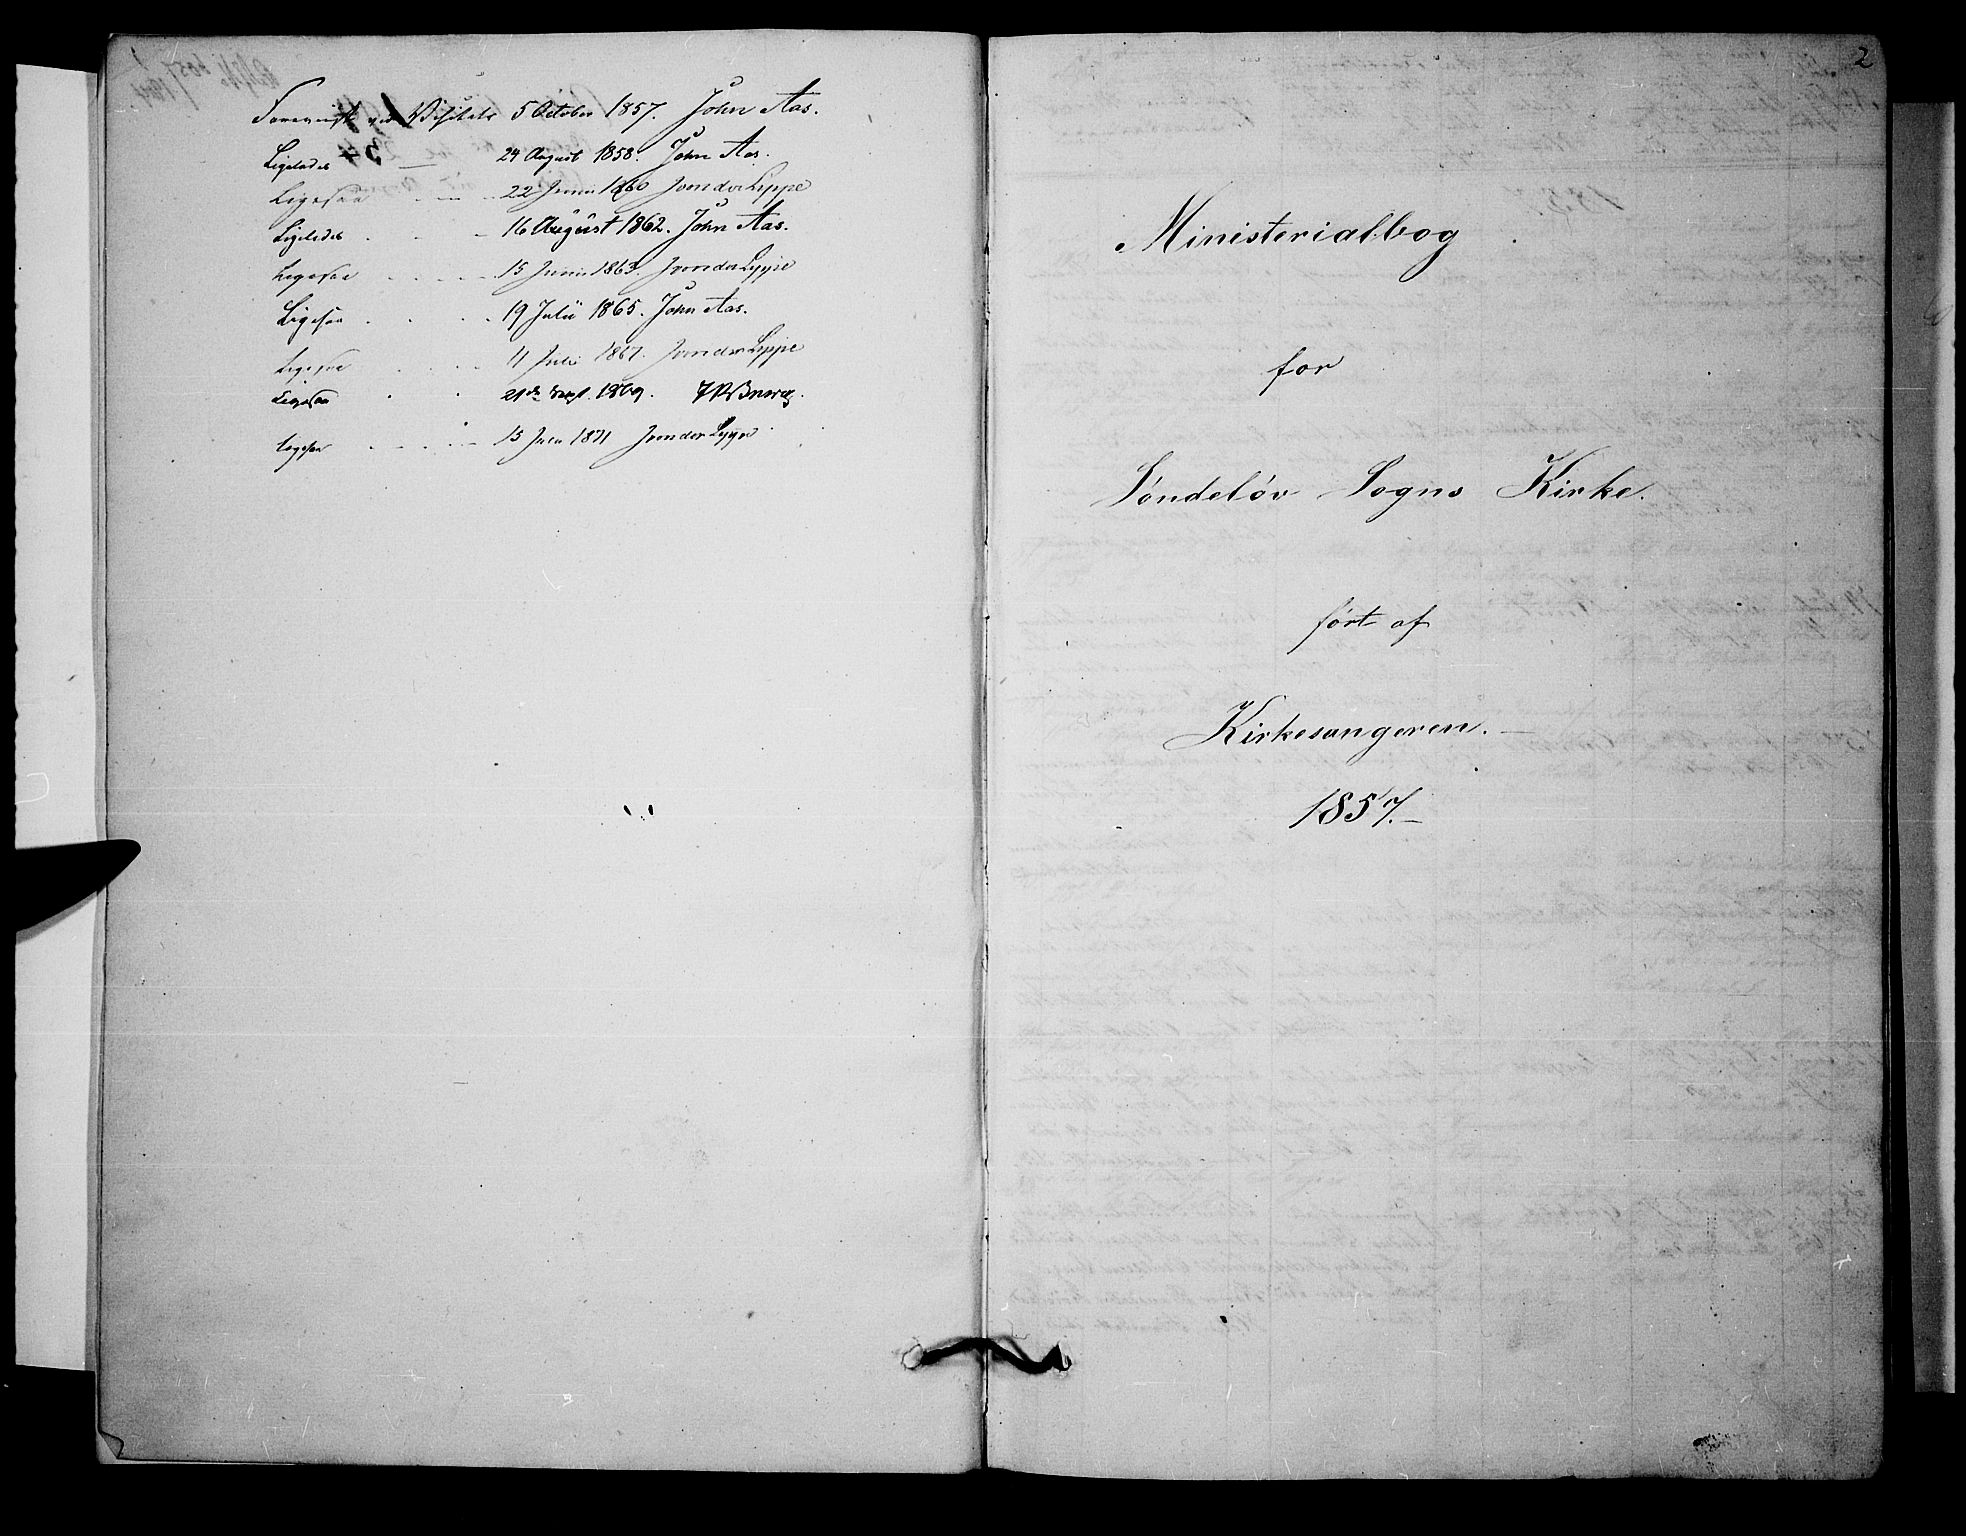 Foreviist ved Visitats 5 October 1857. John Aas.
Ligeledes — 24 August 1858. John Aas.
Ligesaa 22 Juni 1860 J von der Lippe
Ligeledes 16 August 1862. John Aas.
Ligesaa 15 Juni 1863. J von der Lippe
Ligesaa 19 Julii 1865. John Aas.
Ligesaa 11 Juli 1867. J von der Lippe
Ligesaa 21de Sept. 1869.
Ligesaa 15 Juli 1871 J von der Lippe
2
Ministerialbog
for
Söndelöv Sogns Kirke.
ført af
Kirkesangeren.—
1857.—